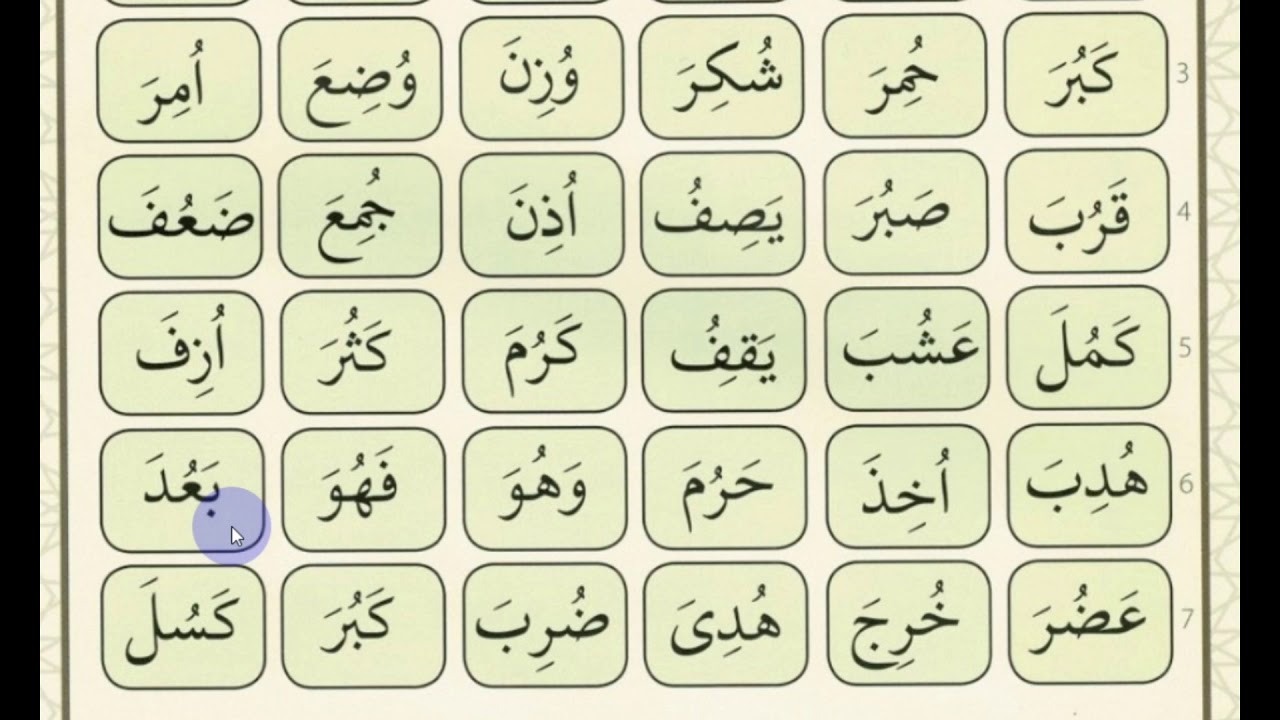 كَبُرَ حُمِرَ شُكِرَ وُزِنَ وُضِعَ اُمِرَ 3
قَرُبَ صَبُرَ يَصِفُ اُذِنَ جُمِعَ ضَعُفَ 4
كَمُلَ عَشُبَ يَقِفُ كَرُمَ كَثُرَ اُزِفَ 5
هُدِبَ اُخِذَ حَرُمَ وَهُوَ فَهُوَ بَعُدَ 6
عَضُرَ خُرِجَ هُدِىَ ضُرِبَ كَبُرَ كَسُلَ 7